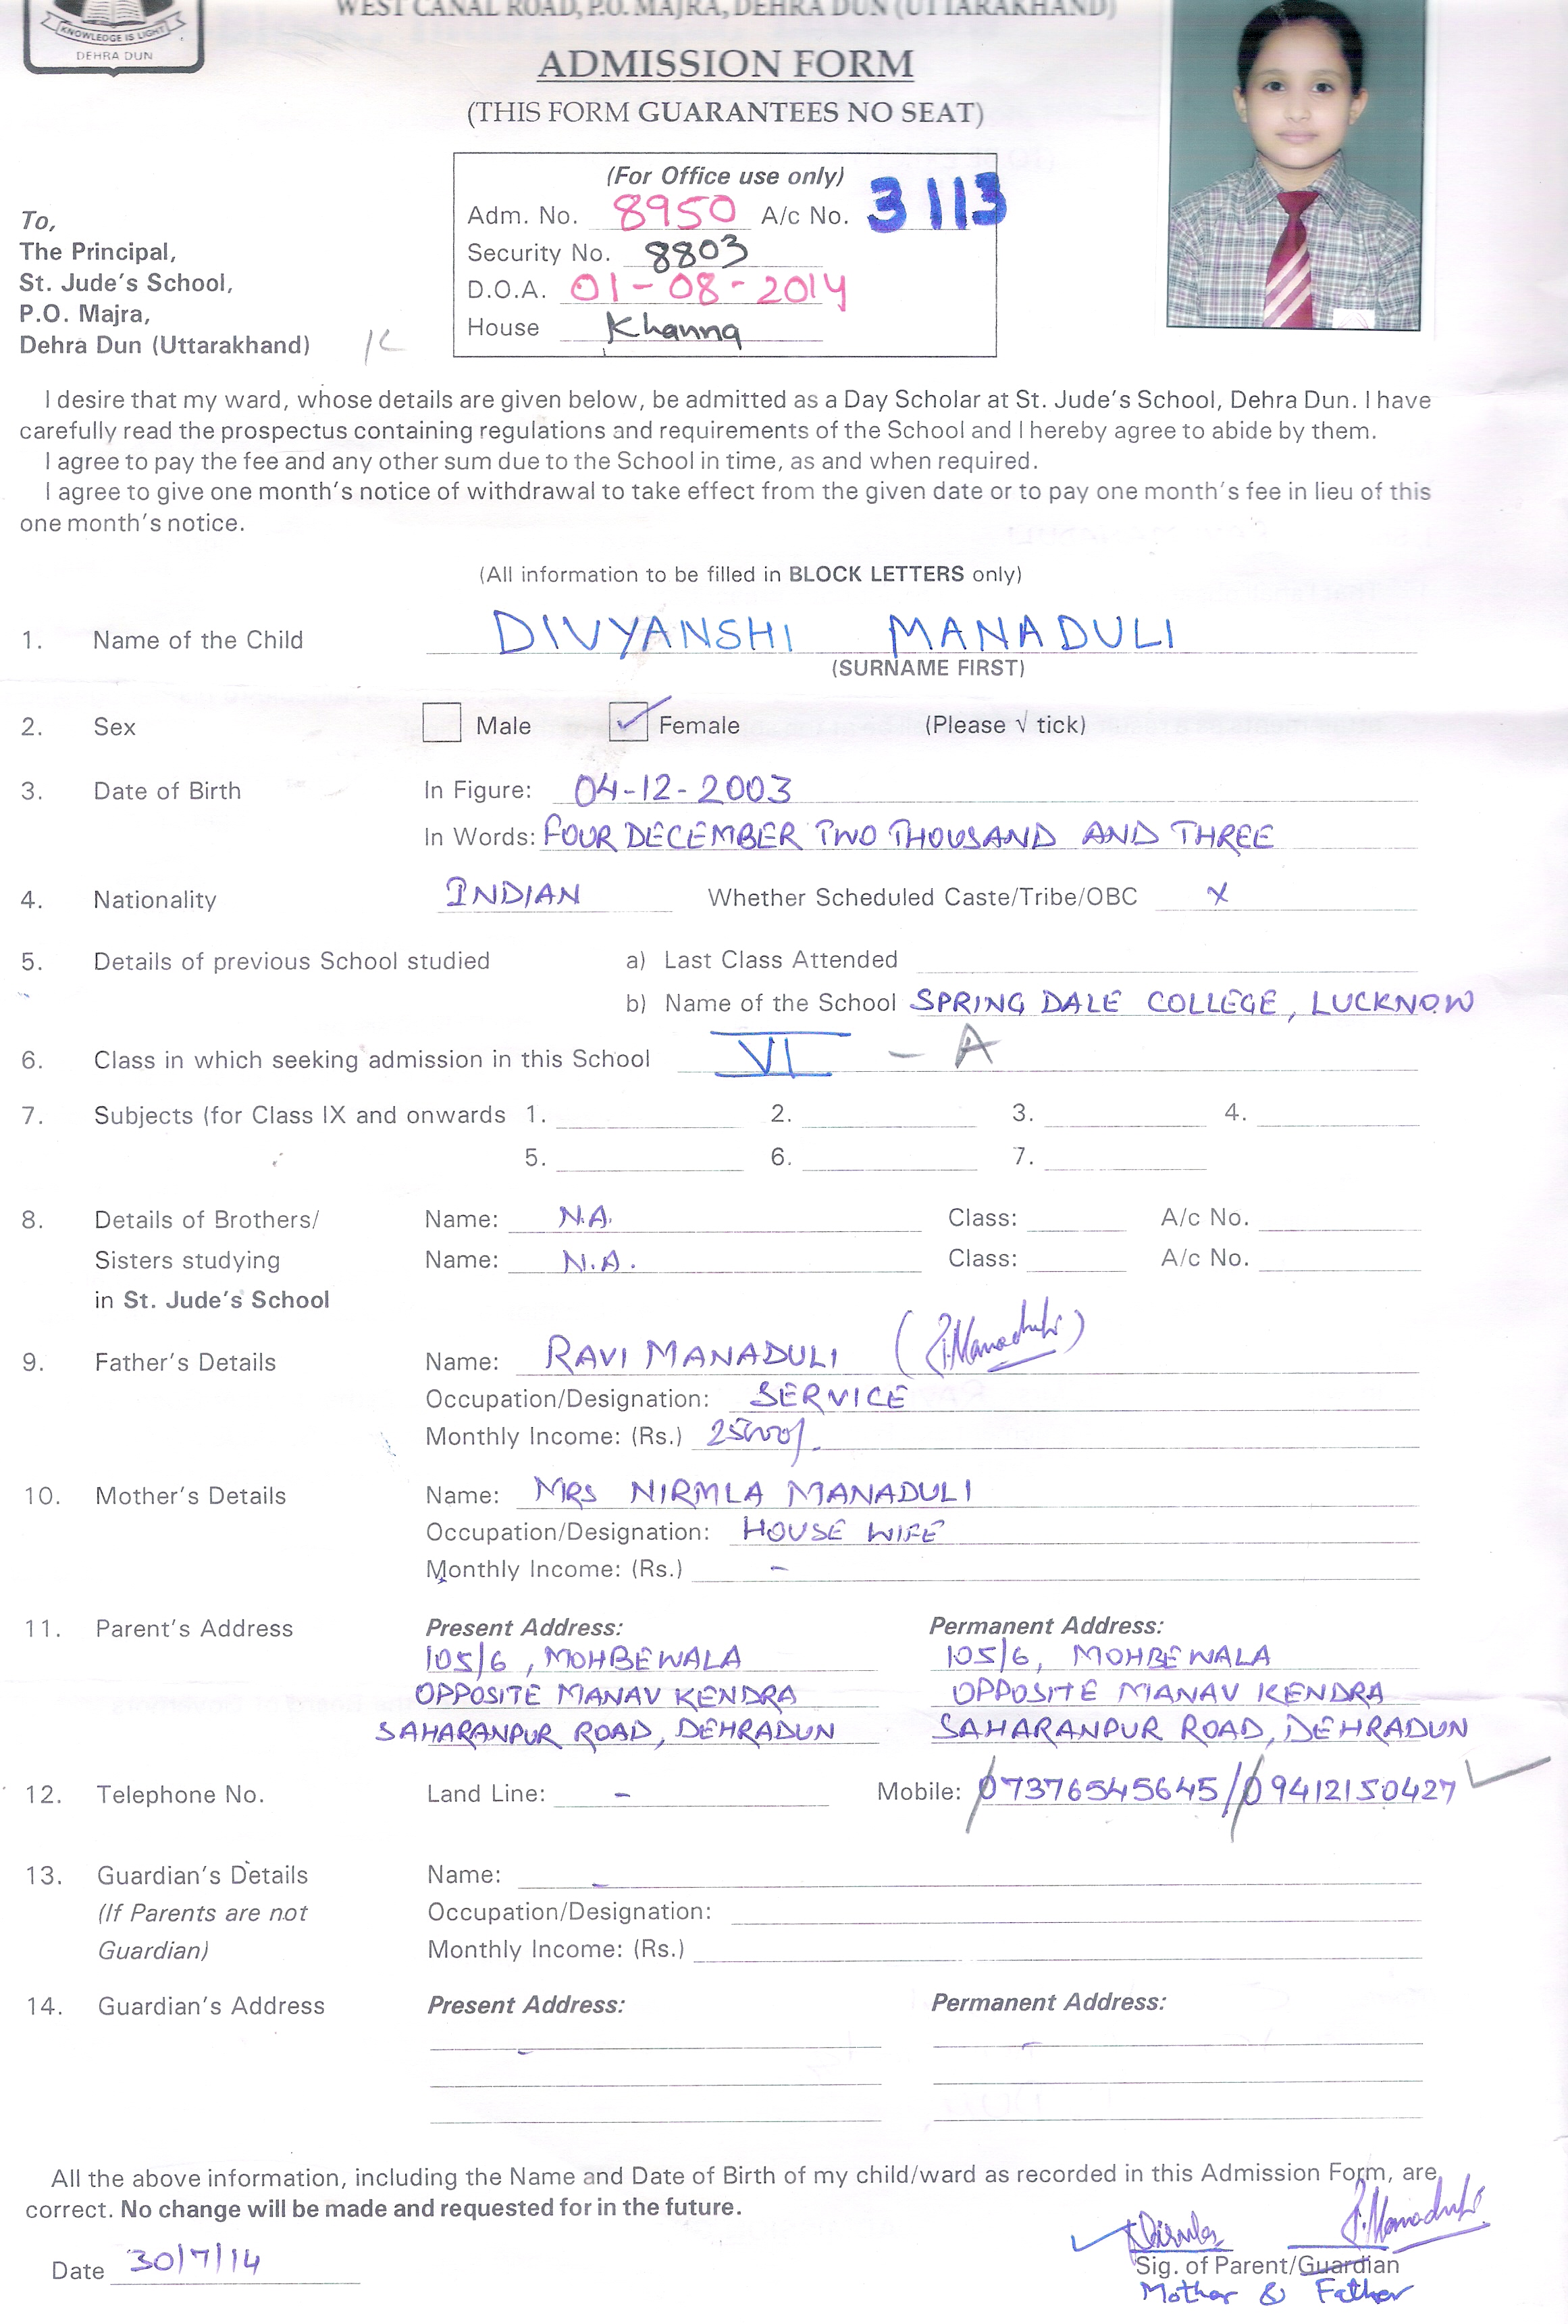 KNOWLEDGE IS LIGHT
DEHRA DUN
WEST CANAL ROAD, P.O. MAJRA, DEHRA DUN (UTTARAKHAND)
ADMISSION FORM
(THIS FORM GUARANTEES NO SEAT)
(For Office use only)
Adm. No. 8950 A/c No. 3113
Security No. 8803
D.O.A. 01-08-2014
House Khanna
To,
The Principal,
St. Jude's School,
P.O. Majra,
Dehra Dun (Uttarakhand)
I desire that my ward, whose details are given below, be admitted as a Day Scholar at St. Jude's School, Dehra Dun. I have
carefully read the prospectus containing regulations and requirements of the School and I hereby agree to abide by them.
I agree to pay the fee and any other sum due to the School in time, as and when required.
I agree to give one month's notice of withdrawal to take effect from the given date or to pay one month's fee in lieu of this
one month's notice.
(All information to be filled in BLOCK LETTERS only)
1. Name of the Child DIVYANSHI MANADULI
(SURNAME FIRST)
2. Sex Male Female (Please √ tick)
3. Date of Birth In Figure: 04-12-2003
In Words: FOUR DECEMBER TWO THOUSAND AND THREE
4. Nationality INDIAN Whether Scheduled Caste/Tribe/OBC x
5. Details of previous School studied a) Last Class Attended
b) Name of the School SPRING DALE COLLEGE, LUCKNOW
6. Class in which seeking admission in this School VI - A
7. Subjects (for Class IX and onwards 1. 2. 3. 4.
5. 6. 7.
8. Details of Brothers/ Name: N.A. Class: A/c No.
Sisters studying Name: N.A. Class: A/c No.
in St. Jude's School
9. Father's Details Name: RAVI MANADULI (R.Manaduli)
Occupation/Designation: SERVICE
Monthly Income: (Rs.) 25000/.
10. Mother's Details Name: MRS NIRMLA MANADULI
Occupation/Designation: HOUSE WIFE
Monthly Income: (Rs.) -
11. Parent's Address Present Address: Permanent Address:
105/6, MOHBEWALA 105/6, MOHBEWALA
OPPOSITE MANAV KENDRA OPPOSITE MANAV KENDRA
SAHARANPUR ROAD, DEHRADUN SAHARANPUR ROAD, DEHRADUN
12. Telephone No. Land Line: - Mobile: 07376545645/09412150427
13. Guardian's Details Name: -
(If Parents are not Occupation/Designation:
Guardian) Monthly Income: (Rs.)
14. Guardian's Address Present Address: Permanent Address:
- -
All the above information, including the Name and Date of Birth of my child/ward as recorded in this Admission Form, are
correct. No change will be made and requested for in the future.
Nirmla R.Manaduli
Date 30/7/14 Sig. of Parent/Guardian
Mother & Father